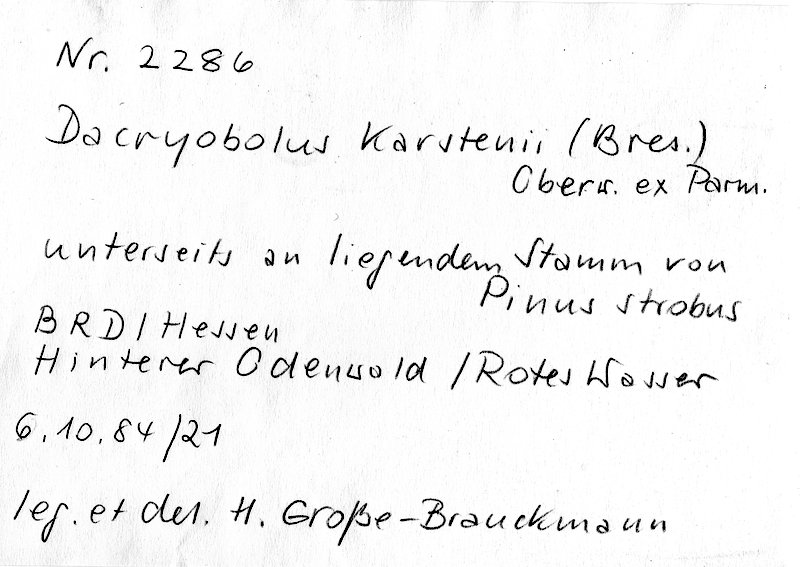 Nr. 2286
Dacryobolus Karstenii (Bres.)
Oberw. ex Parm.
unterseits an liegendem Stamm von
Pinus strobus
BRD/Hessen
Hinterer Odenwald / Rotes Wasser
6.10.84/21
leg. et det. H. Große-Brauckmann